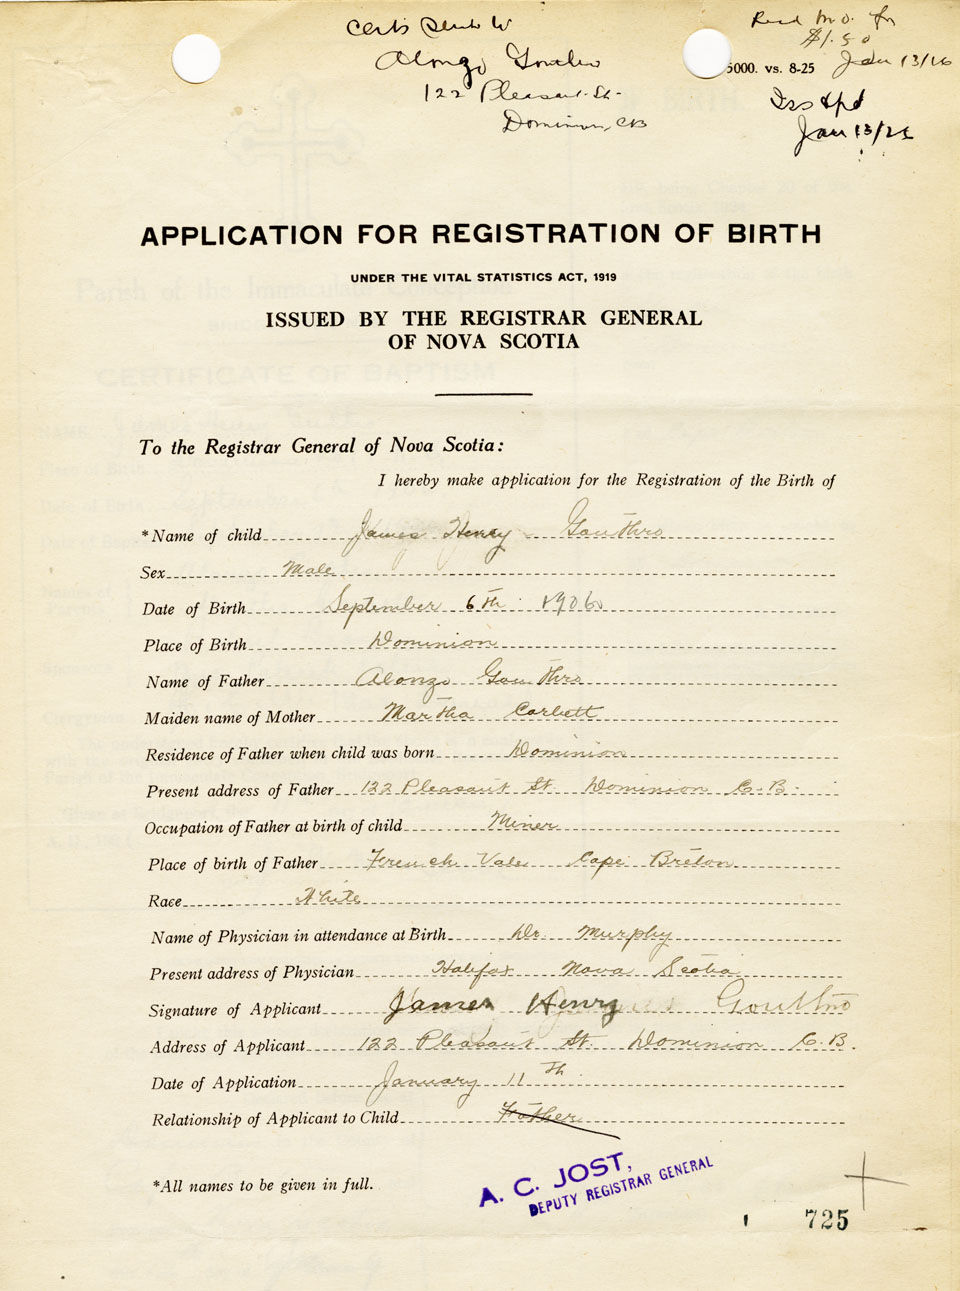 Certs Sent to
Alonzo Gouthro
122 Pleasant St.
Dominion, CB
Recd M.O. for
$1.50
Jan 13/26
5000. vs. 8-25
Iss &
Jan 13/26
APPLICATION FOR REGISTRATION OF BIRTH
UNDER THE VITAL STATISTICS ACT, 1919
ISSUED BY THE REGISTRAR GENERAL
OF NOVA SCOTIA
To the Registrar General of Nova Scotia:
I hereby make application for the Registration of the Birth of
*Name of child James Henry Gouthro
Sex Male
Date of Birth September 6th 1906
Place of Birth Dominion
Name of Father Alonzo Gouthro
Maiden name of Mother Martha Corbett
Residence of Father when child was born Dominion
Present address of Father 122 Pleasant St. Dominion C.B.
Occupation of Father at birth of child Miner
Place of birth of Father French Vale Cape Breton
Race White
Name of Physician in attendance at Birth Dr. Murphy
Present address of Physician Halifax Nova Scotia
Signature of Applicant James Henry Gouthro
Address of Applicant 122 Pleasant St. Dominion C.B.
Date of Application January 11th
Relationship of Applicant to Child Father
*All names to be given in full.
A. C. JOST,
DEPUTY REGISTRAR GENERAL
725